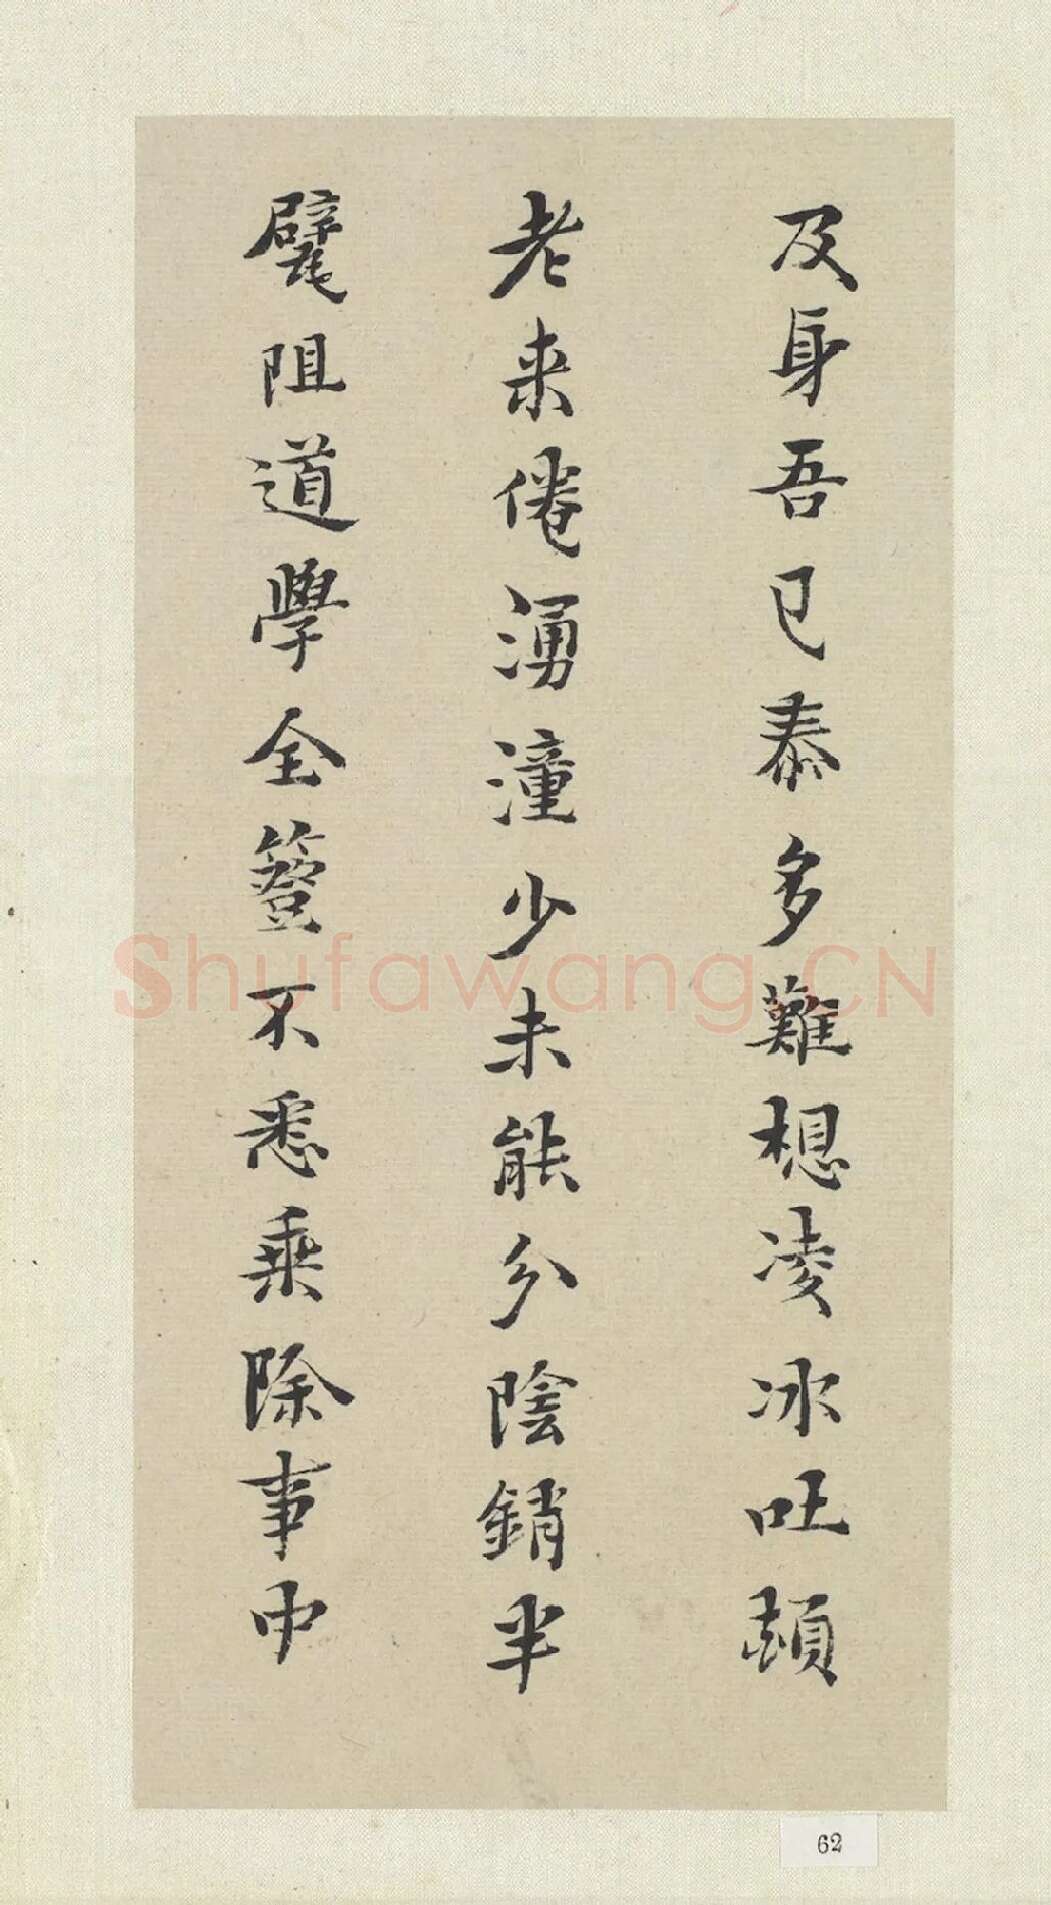 及身吾已泰多難想凌冰吐
老来倦湧潼少未能分陰銷半
阻道學全簦不悉乘除事中
Shufawang.CN
62